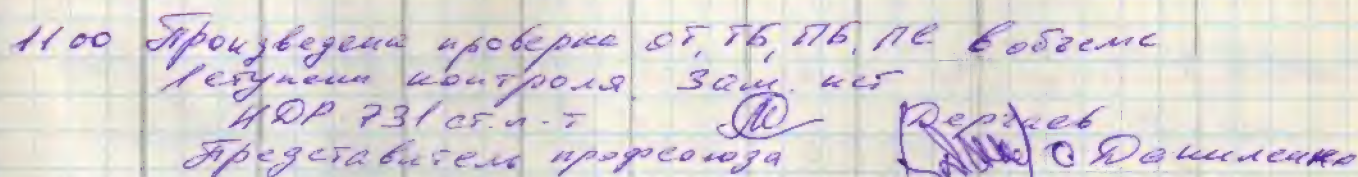 11 00 Произведена проверка ОТ, ТБ, ПБ, ПС в объеме
1 ступени контроля. Зам. нет
НДР 731 ст. л-т Дергаев
Представитель профсоюза О Даниленко